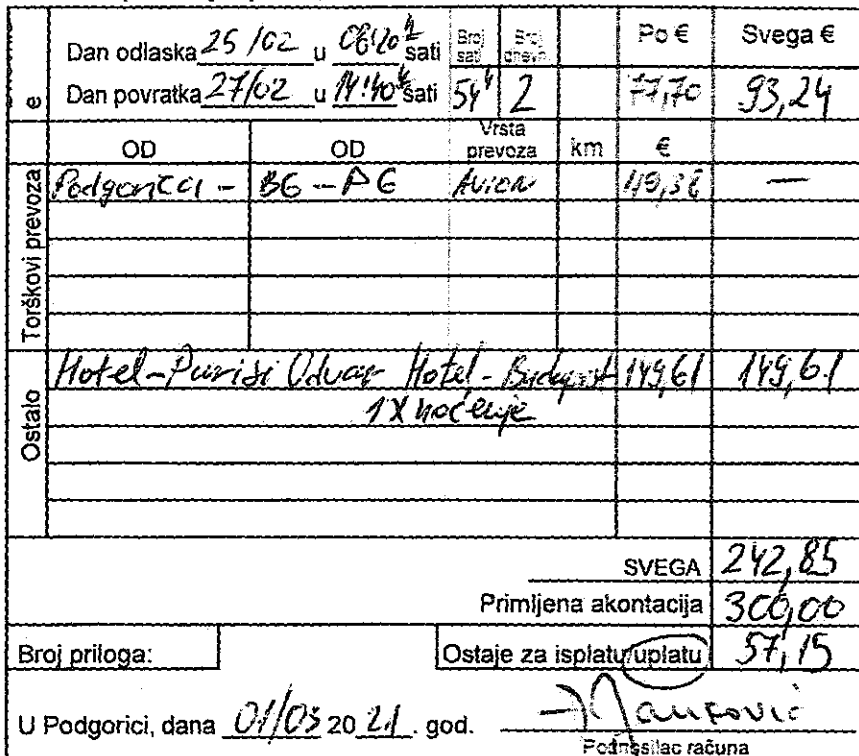 Dan odlaska 25/02 u 08:20 h sati Broj sati Broj dnevn. Po € Svega €
e Dan povratka 27/02 u 14:40 h sati 54 h 2 77,70 93,24
Torškovi prevoza OD OD Vrsta prevoza km €
Podgorica - BG - PG Avion 49,38 —
Ostalo Hotel - Udvar Hotel - Budapest 149,61 149,61
1 X noćenje
SVEGA 242,85
Primljena akontacija 300,00
Broj priloga: Ostaje za isplatu/uplatu 57,15
U Podgorici, dana 01/03 20 21. god.
Podnosilac računa